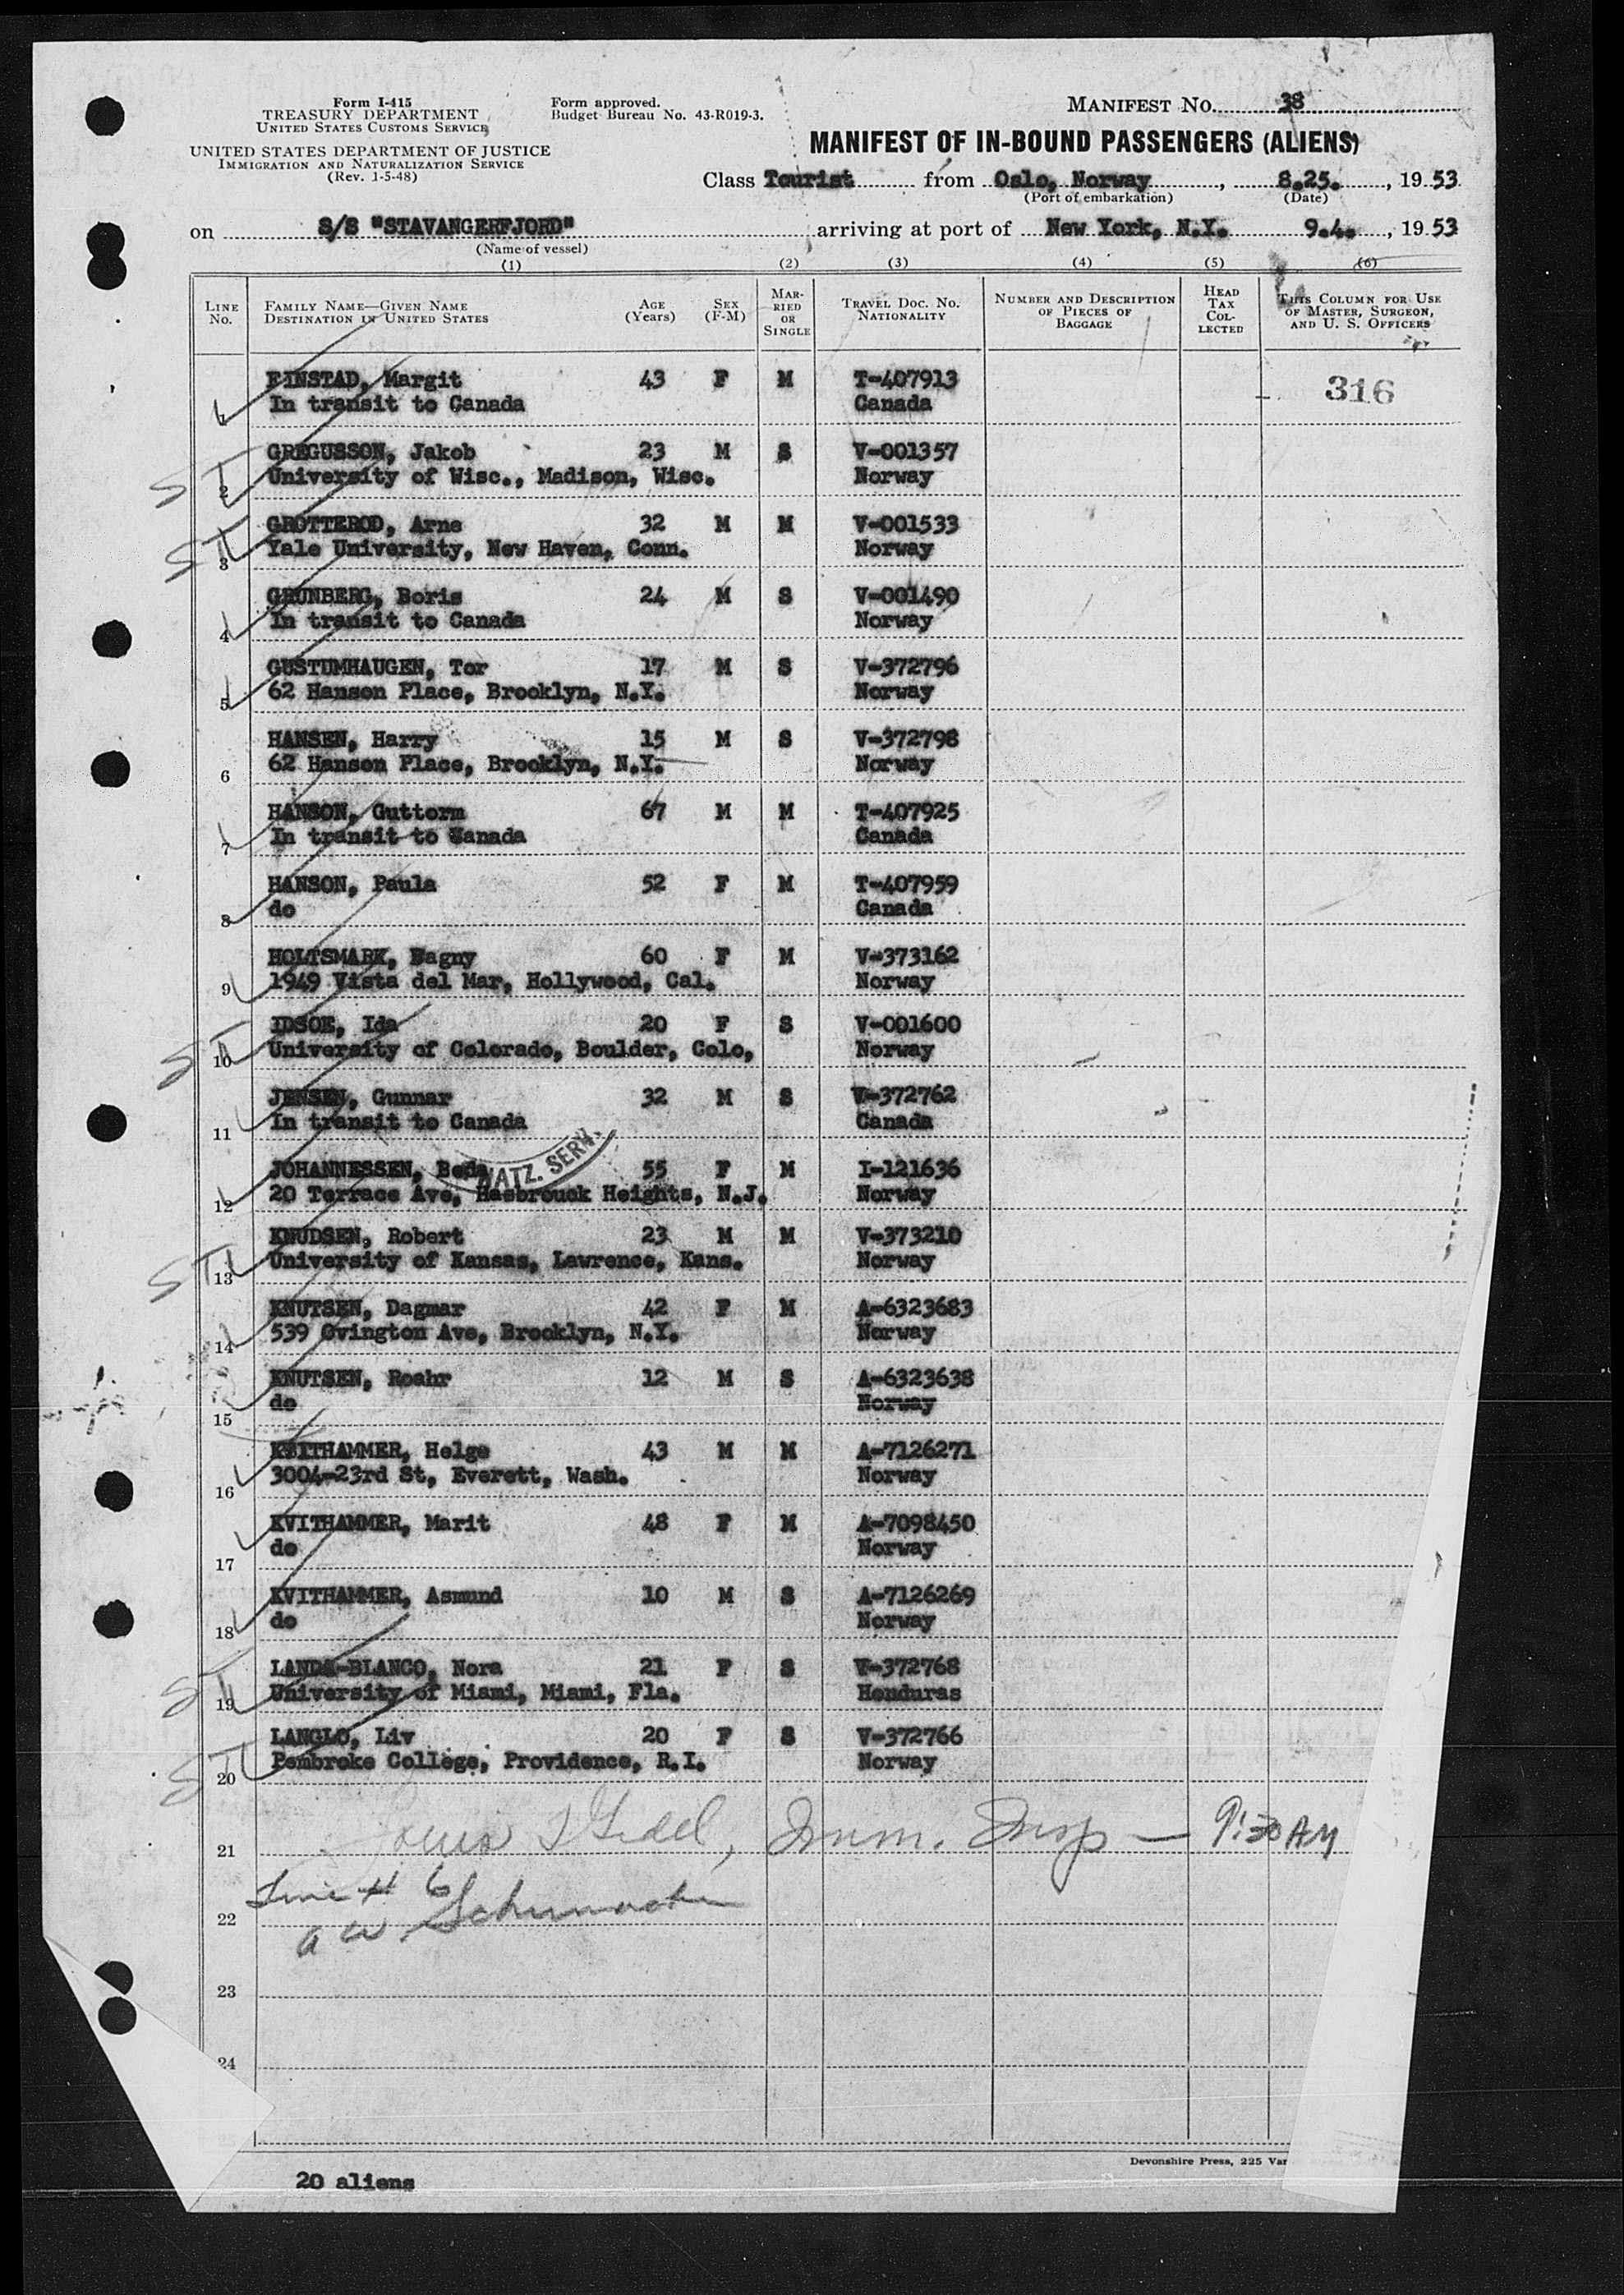 Form I-415
TREASURY DEPARTMENT
UNITED STATES CUSTOMS SERVICE
UNITED STATES DEPARTMENT OF JUSTICE
IMMIGRATION AND NATURALIZATION SERVICE
(Rev. 1-5-48)
Form approved.
Budget Bureau No. 43-R019-3.
MANIFEST NO. 38
MANIFEST OF IN-BOUND PASSENGERS (ALIENS)
Class Tourist from Oslo, Norway, 8.25., 19 53
(Port of embarkation) (Date)
on S/S "STAVANGERFJORD" arriving at port of New York, N.Y. 9.4., 19 53
(Name of vessel)
(1) (2) (3) (4) (5) (6)
LINE NO. FAMILY NAME—GIVEN NAME DESTINATION IN UNITED STATES AGE (YEARS) SEX (F-M) MARRIED OR SINGLE TRAVEL DOC. NO. NATIONALITY NUMBER AND DESCRIPTION OF PIECES OF BAGGAGE HEAD TAX COLLECTED THIS COLUMN FOR USE OF MASTER, SURGEON, AND U. S. OFFICERS
EINSTAD, Margit 43 F M T-407913 316
1 In transit to Canada Canada
GREGUSSON, Jakob 23 M S V-001357
ST 2 University of Wisc., Madison, Wisc. Norway
GROTTEROD, Arne 32 M M V-001533
ST 3 Yale University, New Haven, Conn. Norway
GRUNBERG, Boris 24 M S V-001490
4 In transit to Canada Norway
GUSTUMHAUGEN, Tor 17 M S V-372796
5 62 Hanson Place, Brooklyn, N.Y. Norway
HANSEN, Harry 15 M S V-372798
6 62 Hanson Place, Brooklyn, N.Y. Norway
HANSON, Guttorm 67 M M T-407925
7 In transit to Canada Canada
HANSON, Paula 52 F M T-407959
8 do Canada
HOLTSMARK, Dagny 60 F M V-373162
9 1949 Vista del Mar, Hollywood, Cal. Norway
IDSOE, Ida 20 F S V-001600
ST 10 University of Colorado, Boulder, Colo, Norway
JENSEN, Gunnar 32 M S V-372762
11 In transit to Canada Canada
JOHANNESSEN, Beda 55 F M I-121636
NATZ. SERV.
12 20 Terrace Ave, Hasbrouck Heights, N.J. Norway
KNUDSEN, Robert 23 M M V-373210
ST 13 University of Kansas, Lawrence, Kans. Norway
KNUTSEN, Dagmar 42 F M A-6323683
14 539 Ovington Ave, Brooklyn, N.Y. Norway
KNUTSEN, Roahr 12 M S A-6323638
15 do Norway
KVITHAMMER, Helge 43 M M A-7126271
16 3004-23rd St, Everett, Wash. Norway
KVITHAMMER, Marit 48 F M A-7098450
17 do Norway
KVITHAMMER, Asmund 10 M S A-7126269
18 do Norway
LANDA-BLANCO, Nora 21 F S V-372768
ST 19 University of Miami, Miami, Fla. Honduras
LANGLO, Liv 20 F S V-372766
ST 20 Pembroke College, Providence, R.I. Norway
21 Imm. Insp — 9:30 AM
Line # 6
22 A W. Schumacher
23
24
Devonshire Press, 225 Var
20 aliens